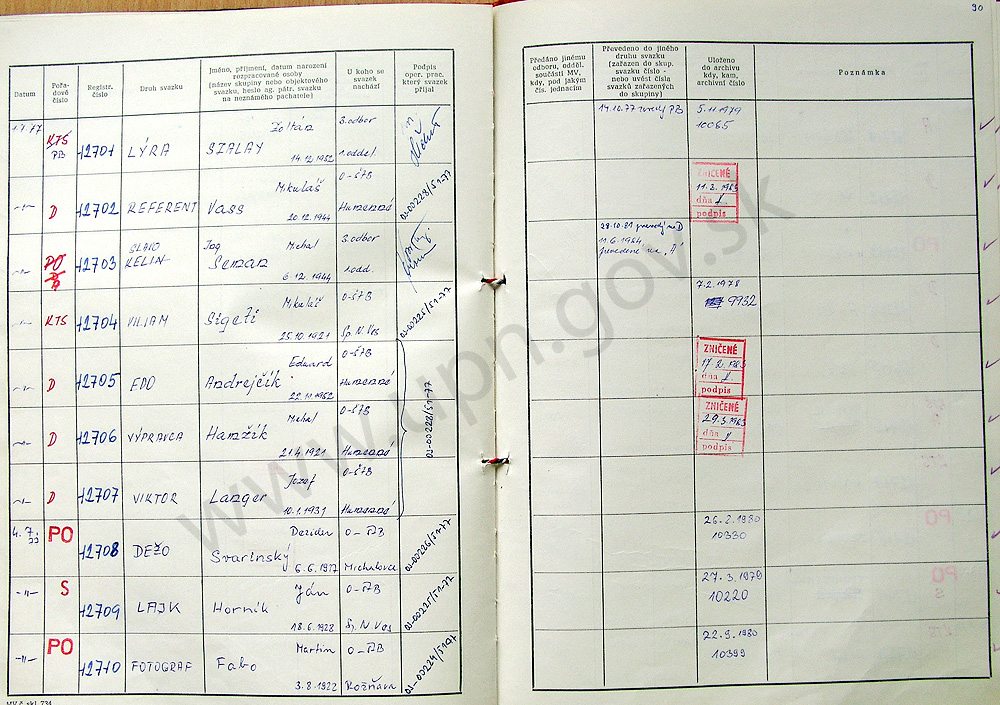 90
Datum
Pořadové číslo
Registr. číslo
Druh svazku
Jméno, příjmení, datum narození
rozpracované osoby
(název skupiny nebo objektového
svazku, heslo ag. pátr. svazku
na neznámého pachatele)
U koho se
svazek
nachází
Podpis
oper. prac.
který svazek
přijal
Předáno jinému
odboru, odděl.
součásti MV,
kdy, pod jakým
čís. jednacím
Převedeno do jiného
druhu svazku
(zařazen do skup.
svazku číslo -
nebo uvést čísla
svazků zařazených
do skupiny)
Uloženo
do archivu
kdy, kam,
archivní číslo
Poznámka
1.7.77 KTS PB 12701 LÝRA Zoltán SZALAY 14.12.1952 3.odbor 1.oddel. 14.10.77 PB 5.11.1979 10065
-"- D 12702 REFERENT Mikuláš Vass 20.12.1944 O-ŠTB Humenné OJ-00228/51-77 ZNIČENÉ dňa podpis
-"- PO 12703 SLAVO KELIN Ing Michal Seman 6.12.1944 3.odbor 1.odd. 28.10.81 na D 11.6.1984 prevedené na "A"
-"- KTS 12704 VILIAM Mikuláš Sigeti 25.10.1921 O-ŠTB Sp.N.Ves OJ-00225/51-77 7.2.1978 9932
-"- D 12705 EDO Eduard Andrejčík 22.11.1952 O-ŠTB Humenné OJ-00228/51-77 ZNIČENÉ dňa podpis
-"- D 12706 VÝPRAVCA Michal Hamžík 21.4.1921 O-ŠTB Humenné ZNIČENÉ dňa podpis
-"- D 12707 VIKTOR Jozef Langer 10.1.1931 O-ŠTB Humenné
4.7.77 PO 12708 DEŽO Dezider Svarinský 6.6.1917 O-ŠTB Michalovce OJ-00226/51-77 26.2.1980 10330
-"- S 12709 LAJK Ján Horník 18.6.1928 O-ŠTB Sp.N.Ves OJ-00225/51-77 27.3.1976 10220
-"- PO 12710 FOTOGRAF Martin Fabo 3.8.1922 O-ŠTB Rožňava OJ-00224/51-77 22.9.1980 10399
www.upn.gov.sk